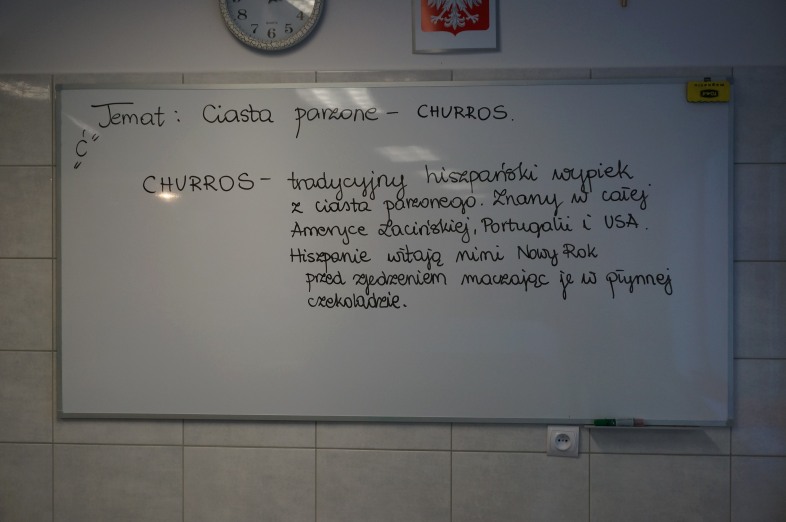 Temat: Ciasta parzone - CHURROS.
"Ć"
CHURROS - tradycyjny hiszpański wypiek
z ciasta parzonego. Znany w całej
Ameryce Łacińskiej, Portugalii i USA.
Hiszpanie witają nimi Nowy Rok
przed zjedzeniem maczając je w płynnej
czekoladzie.